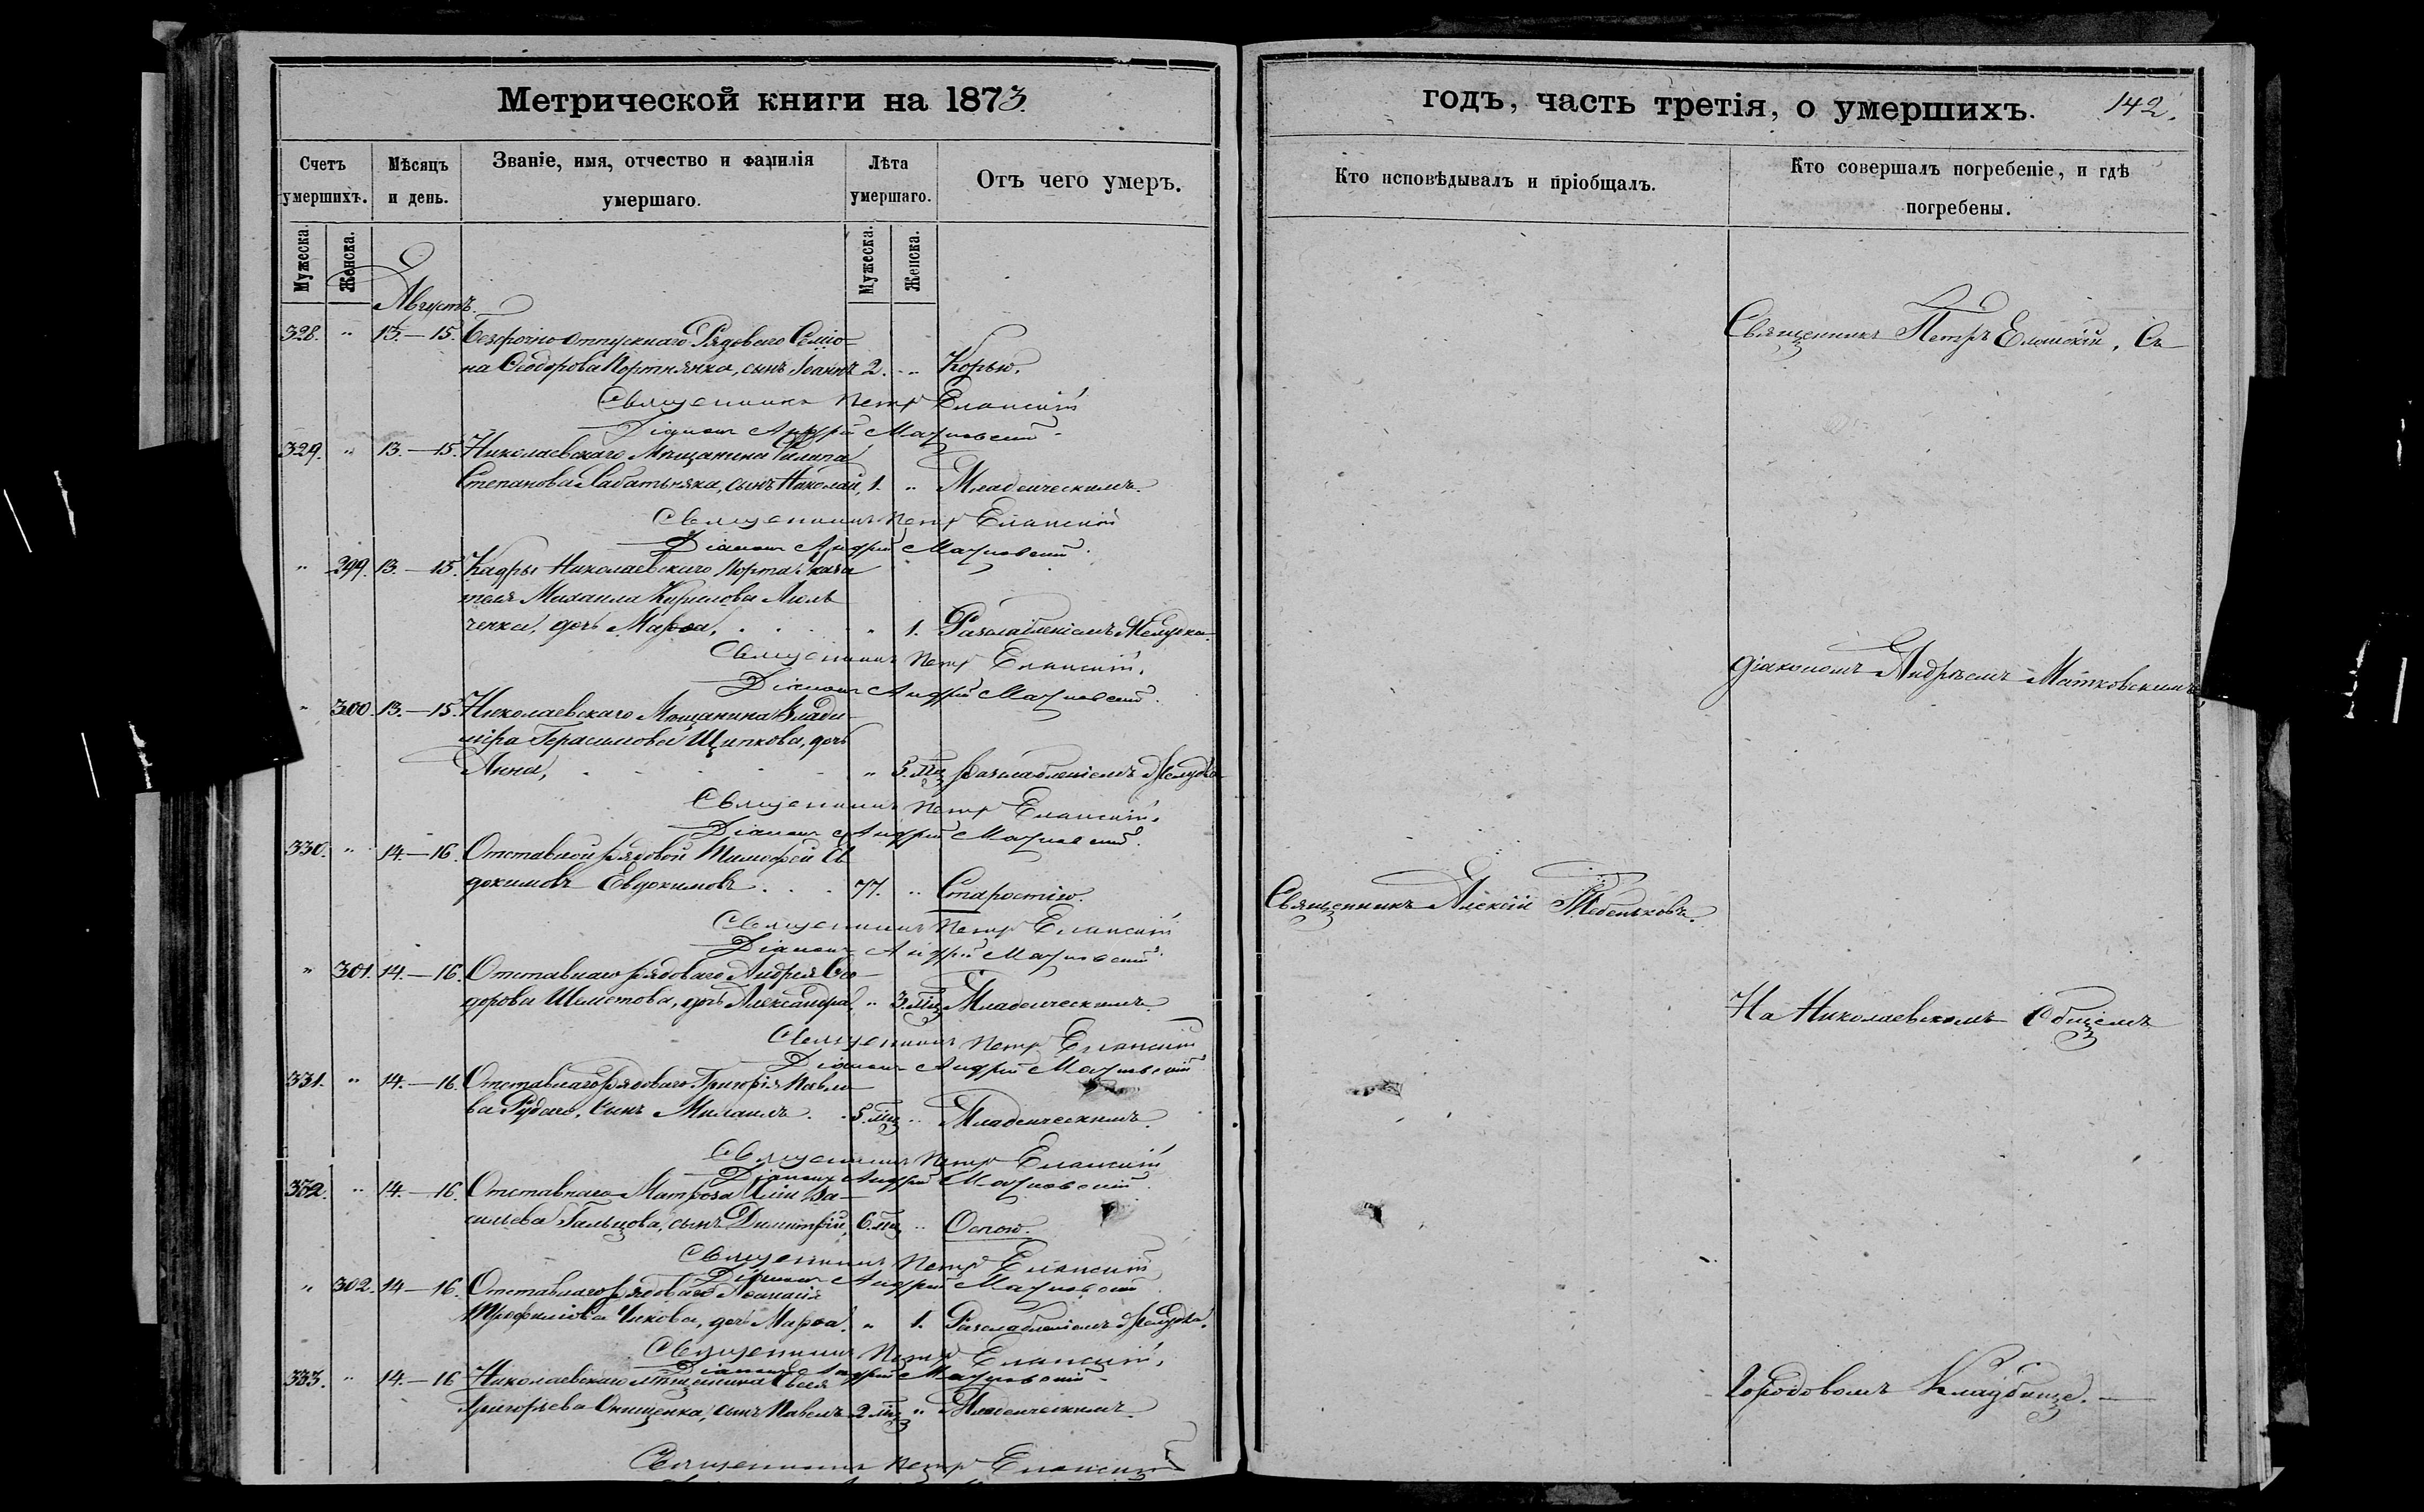 Метрической книги на 1873.
Счетъ умершихъ.
Мѣсяцъ и день.
Званіе, имя, отчество и фамилія умершаго.
Лѣта умершаго.
Отъ чего умеръ.
Мужеска.
Женска.
Мужеска.
Женска.
Августъ.
328. " 13.—15. Безсрочно-отпускнаго Рядоваго Семіо-
на Ѳеодорова Портнянка, сынъ Іоаннъ 2. " Корью.
Священникъ Петръ Еланскій
Діаконъ Андрей Матковскій
329. " 13.—15. Николаевскаго Мѣщанина Филипа
Степанова Сабатьняка, сынъ Николай, 1. " Младенческимъ.
Священникъ Петръ Еланскій
Діаконъ Андрей Матковскій.
" 299. 13.—15. Кадры Николаевскаго Порта
Михаила Кирилова
ченка, дочь Марѳа, " 1. Разслаблениемъ Желудка.
Священникъ Петръ Еланскій.
Діаконъ Андрей Матковскій.
" 300. 13.—15. Николаевскаго Мѣщанина Влади-
міра Герасимова Щипкова, дочь
Анна, " 5. мц. Разслаблениемъ Желудка
Священникъ Петръ Еланскій.
Діаконъ Андрей Матковскій.
330. " 14.—16. Отставной рядовой Тимофей Ев
докимовъ Евдокимовъ . . . 77. " Старостію.
Священникъ Петръ Еланскій
Діаконъ Андрей Матковскій.
" 301. 14.—16. Отставнаго рядоваго Андрея Ѳео-
дорова Шеметова, дочь Александра, " 3. мц. Младенческимъ.
Священникъ Петръ Еланскій
Діаконъ Андрей Матковскій
331. " 14.—16. Отставнаго рядоваго Григорія Павло-
ва Рудаго, сынъ Михаилъ. 5. мц. " Младенческимъ.
Священникъ Петръ Еланскій
Діаконъ Андрей Матковскій.
332. " 14.—16. Отставнаго Матроза Иліи Ва-
сильева Гальцова, сынъ Димитрій, 6. мц. " Оспою.
Священникъ Петръ Еланскій
Діаконъ Андрей Матковскій
" 302. 14—16. Отставнаго рядоваго Аѳанасія
Трофимова Чикова, дочь Марѳа. " 1. Разслаблениемъ Желудка.
Священникъ Петръ Еланскій.
Діаконъ Андрей Матковскій
333. " 14.—16 Николаевскаго мѣщанина
Григорьева Онищенка, сынъ Павелъ 2 мц. " Младенческимъ.
Священникъ Петръ Еланскій
годъ, часть третія, о умершихъ. 142.
Кто исповѣдывалъ и пріобщалъ.
Кто совершалъ погребеніе, и гдѣ погребены.
Священникъ Петръ Еланскій, Съ
діакономъ Андреемъ Матковскимъ,
Священникъ Алексій Тебеньковъ.
На Николаевскомъ Общемъ
Городовомъ Кладбище.—